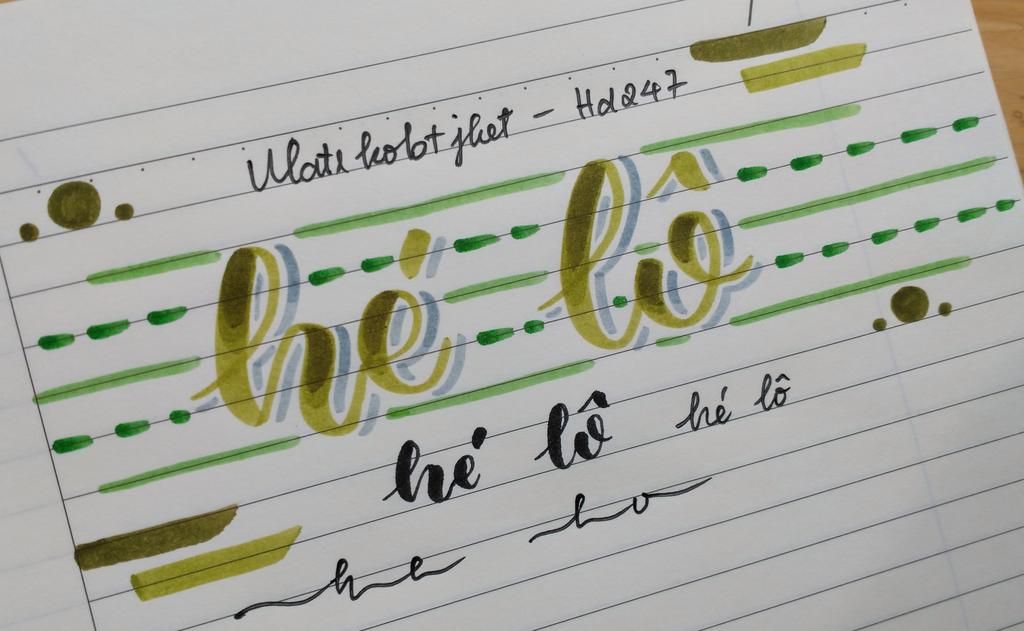 Matikobtjhet - Hd247
hé lô
hé lô hé lô
he ho